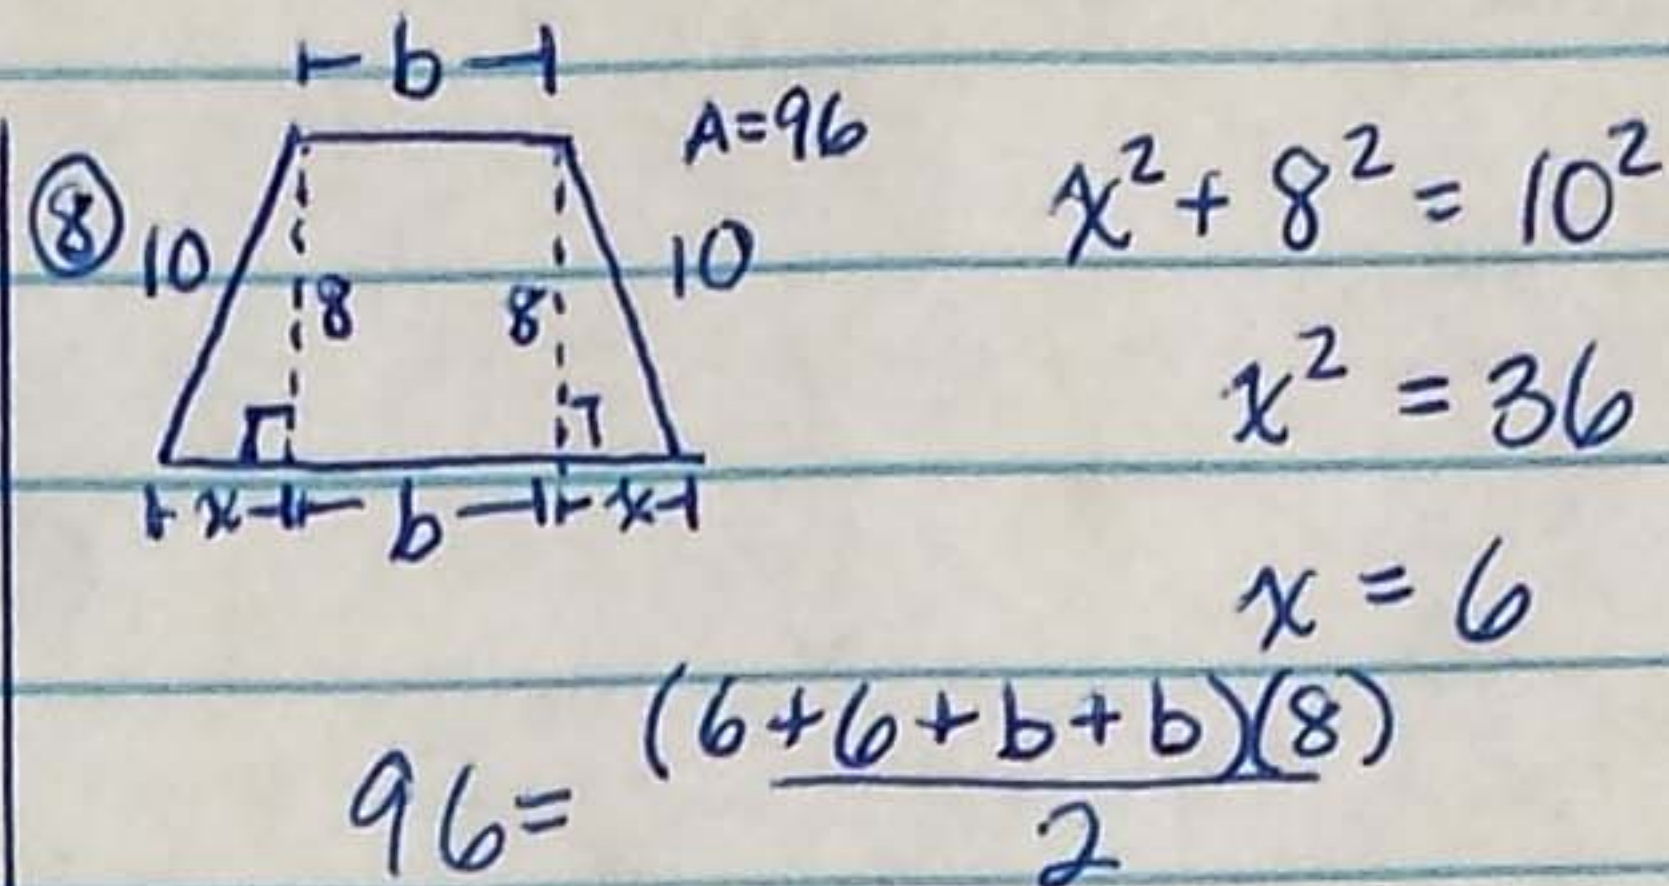 ⊢ b ⊣
A=96
⑧ 10 8 8 10
⊢ x ⊣⊢ b ⊣⊢ x ⊣
x² + 8² = 10²
x² = 36
x = 6
96 = (6+6+b+b)(8) / 2